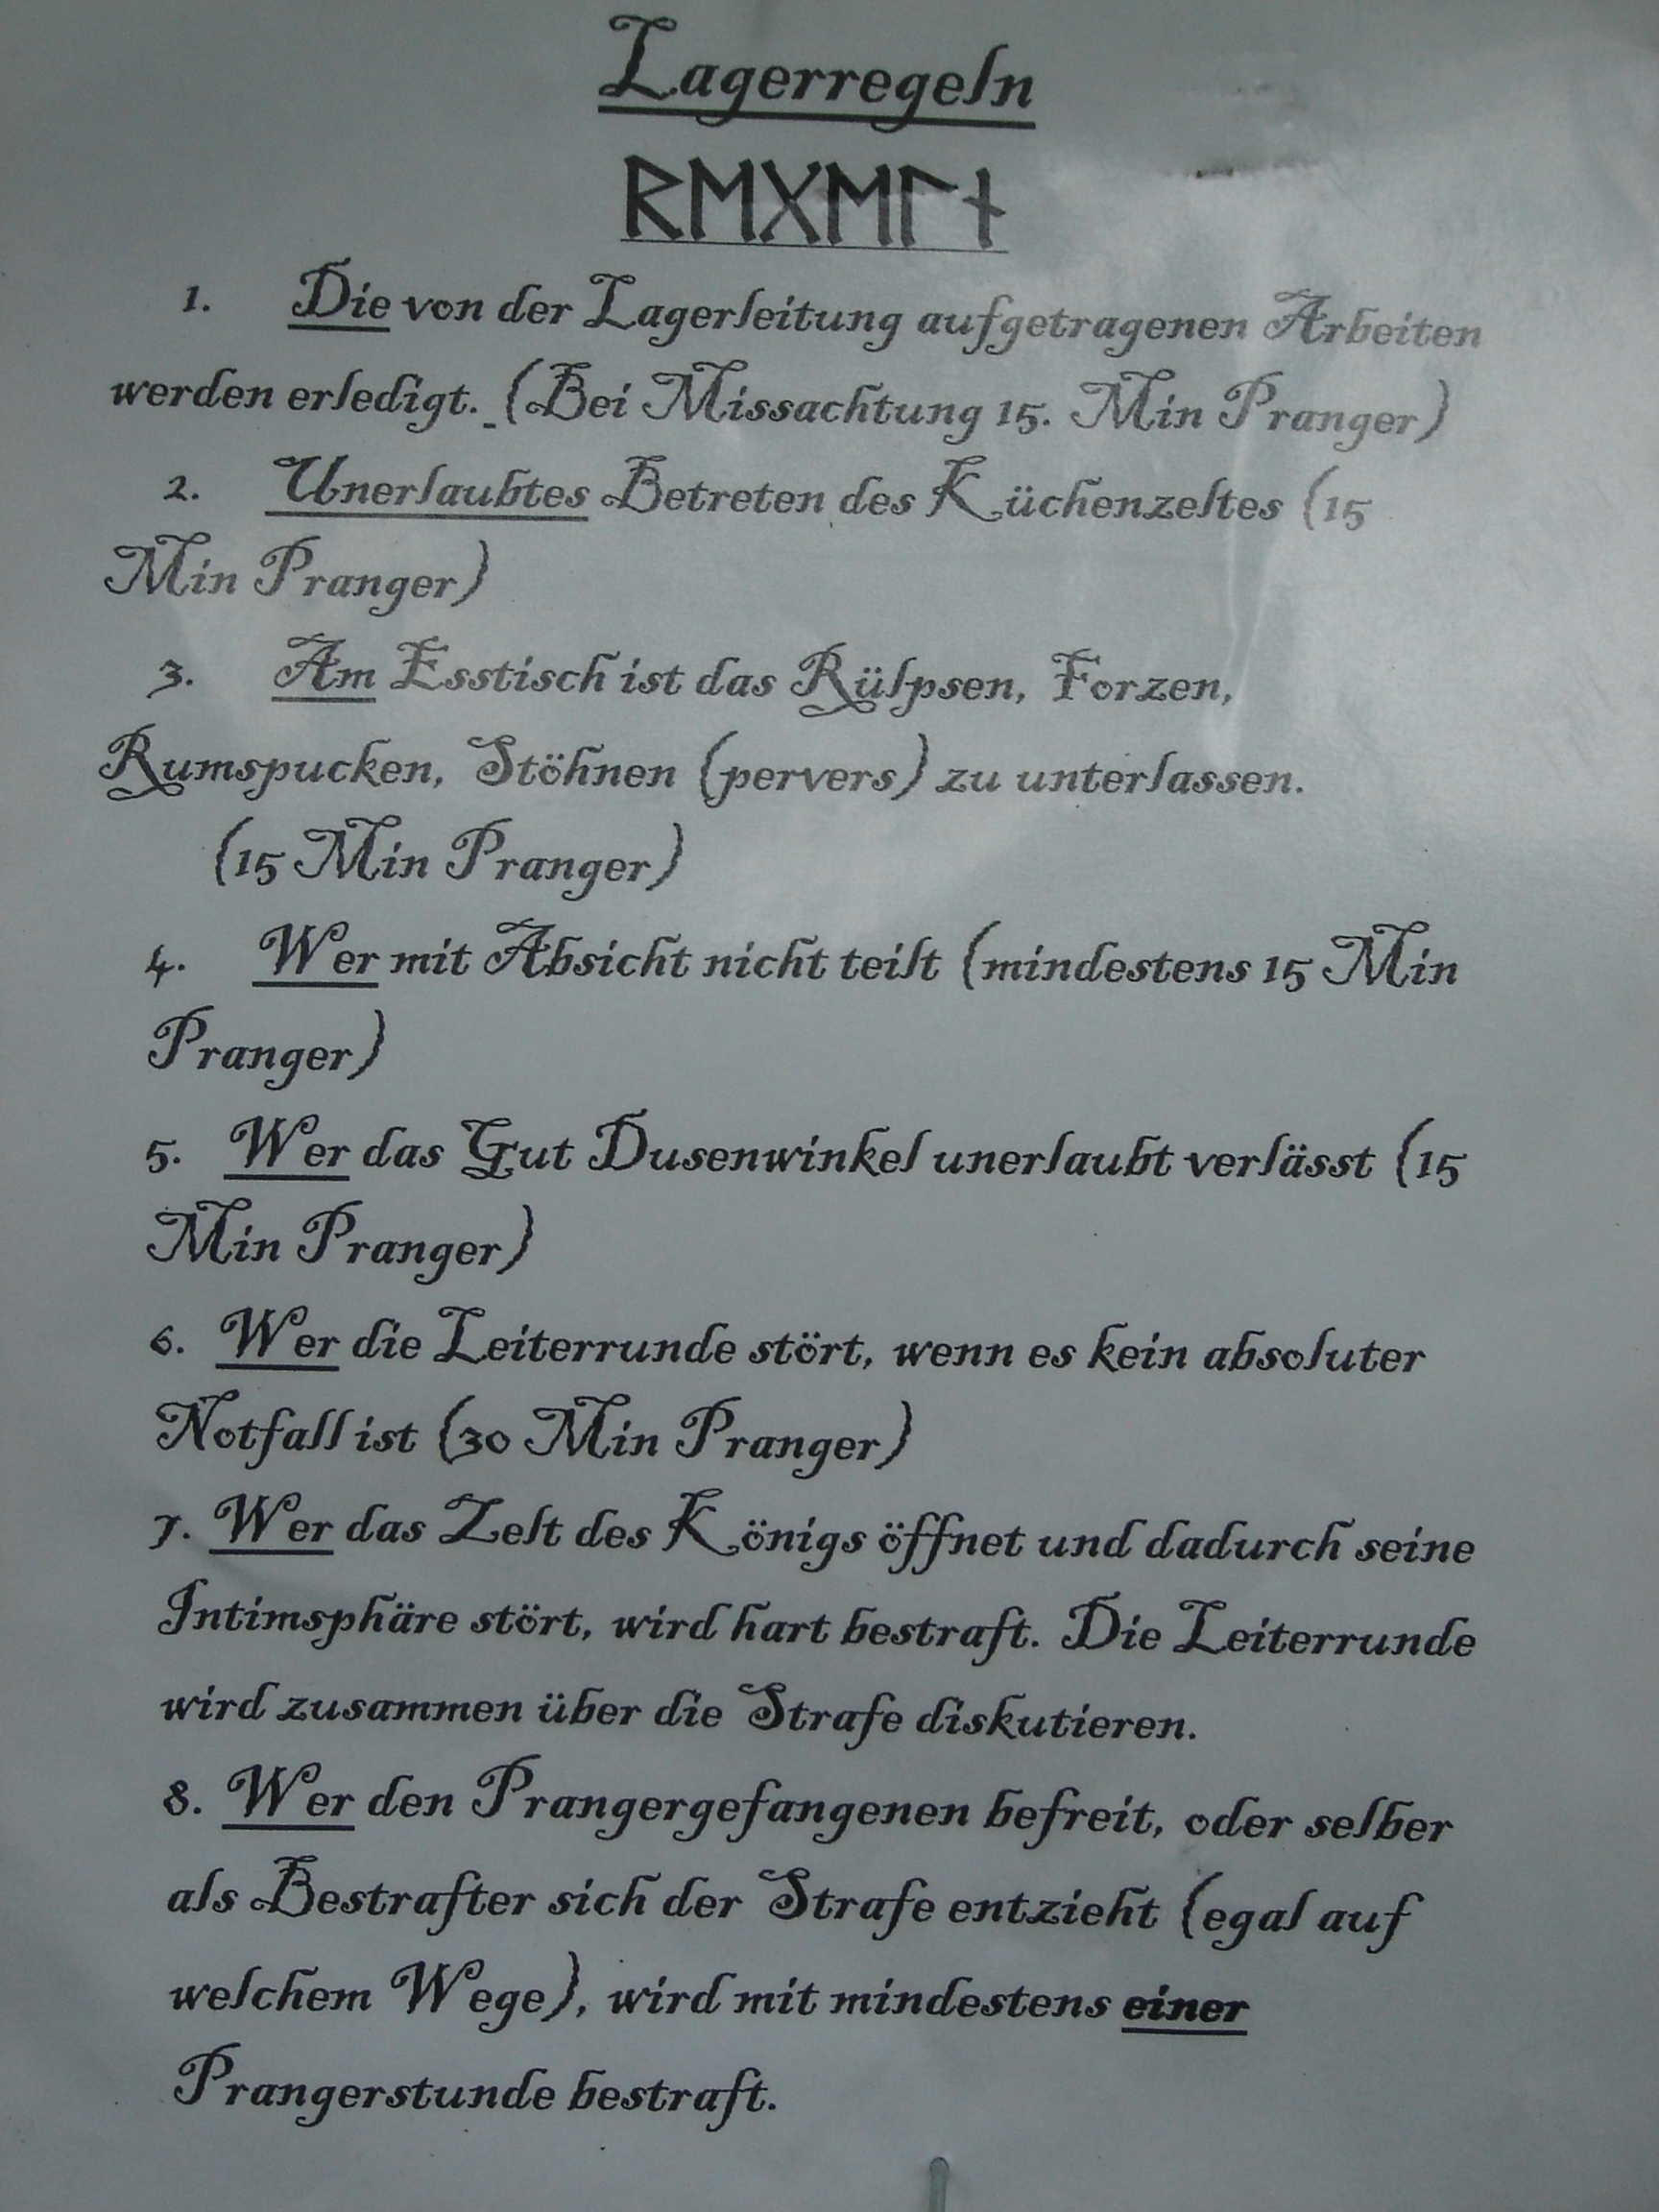 Lagerregeln
REGELN
1. Die von der Lagerleitung aufgetragenen Arbeiten
werden erledigt. (Bei Missachtung 15. Min Pranger)
2. Unerlaubtes Betreten des Küchenzeltes (15
Min Pranger)
3. Am Esstisch ist das Rülpsen, Forzen,
Rumspucken, Stöhnen (pervers) zu unterlassen.
(15 Min Pranger)
4. Wer mit Absicht nicht teilt (mindestens 15 Min
Pranger)
5. Wer das Gut Dusenwinkel unerlaubt verlässt (15
Min Pranger)
6. Wer die Leiterrunde stört, wenn es kein absoluter
Notfall ist (30 Min Pranger)
7. Wer das Zelt des Königs öffnet und dadurch seine
Intimsphäre stört, wird hart bestraft. Die Leiterrunde
wird zusammen über die Strafe diskutieren.
8. Wer den Prangergefangenen befreit, oder selber
als Bestrafter sich der Strafe entzieht (egal auf
welchem Wege), wird mit mindestens einer
Prangerstunde bestraft.